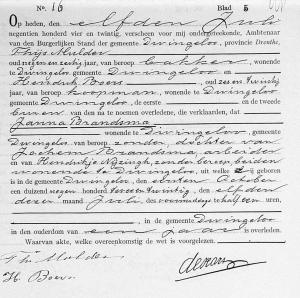 No. 16 Blad 5
Op heden, den elfden Juli
negentien honderd vier en twintig, verscheen voor mij ondergeteekende, Ambtenaar
van den Burgerlijken Stand der gemeente Dwingeloo, provincie Drenthe,
Thijs Mulder
oud negen en zestig jaar, van beroep bakker,
wonende te Dwingeloo gemeente Dwingeloo en
Hendrik Boers oud zes en twintig
jaar, van beroep koopman, wonende te Dwingeloo
gemeente Dwingeloo, de eerste en de tweede
buur van de na te noemen overledene, die verklaarden, dat
Janna Brandsma
wonende te Dwingeloo, gemeente
Dwingeloo van beroep zonder, dochter van
Jochem Brandsma, arbeider
en van Hendrikje Nijzingh, zonder beroep, beiden
wonende te Dwingeloo, uit welke zij geboren
is in de gemeente Dwingeloo, den October
een duizend negen honderd twintig, den elfden
dezer maand Juli des voormiddags te half een uren,
in de gemeente Dwingeloo
in den ouderdom van een jaar is overleden.
Waarvan akte, welke overeenkomstig de wet is voorgelezen.
Th Mulder
H. Boers